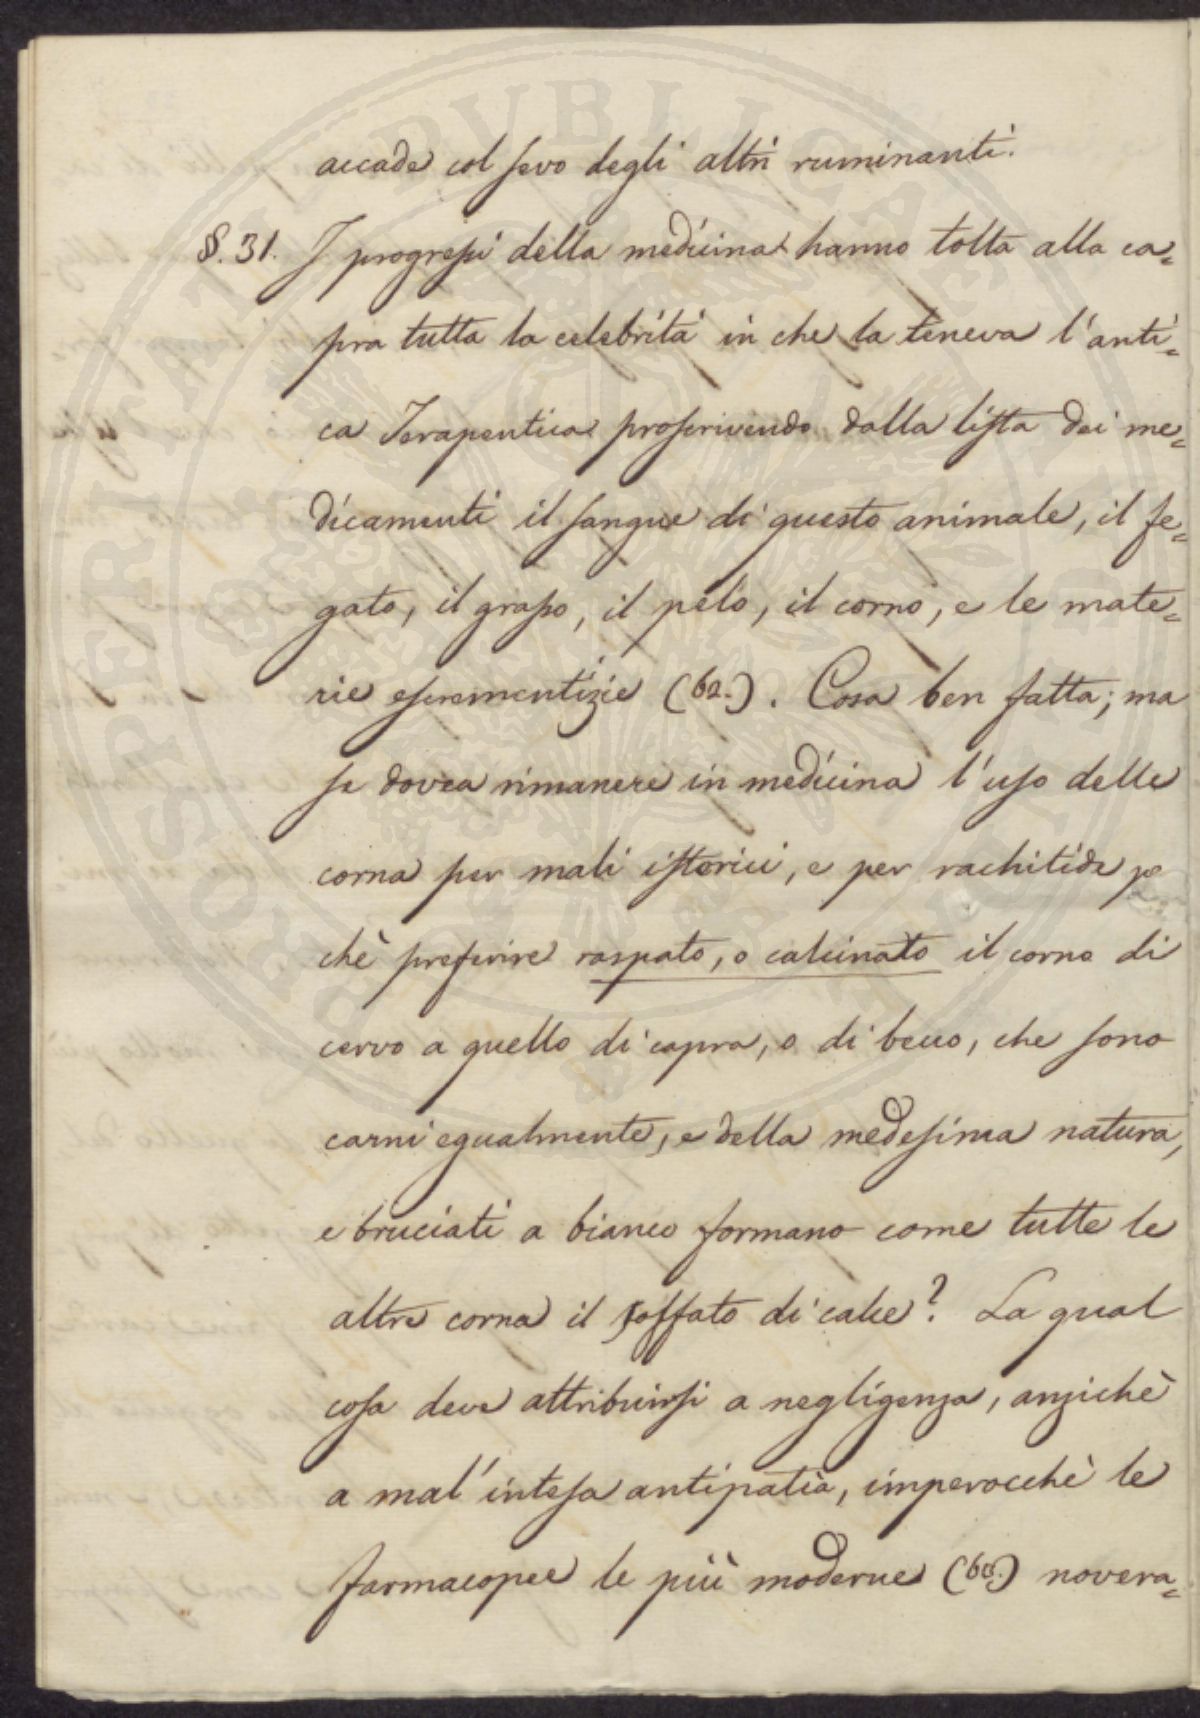 accade col sevo degli altri ruminanti.
§. 31. I progressi della medicina hanno tolta alla ca=
pra tutta la celebrità in che la teneva l'anti=
ca Terapeutica proscrivendo dalla lista dei me=
dicamenti il sangue di questo animale, il fe=
gato, il grasso, il pelo, il corno, e le mate=
rie escrementizie (62.). Cosa ben fatta; ma
se dovea rimanere in medicina l'uso delle
corna per mali isterici, e per rachitide per
chè preferire raspato, o calcinato il corno di
cervo a quello di capra, o di becco, che sono
carni egualmente, e della medesima natura,
e bruciati a bianco formano come tutte le
altre corna il foffato di calce? La qual
cosa deve attribuirsi a negligenza, anzichè
a mal'intesa antipatia, imperocchè le
farmacopee le più moderne novera=
PVBLICAE PROSPERITATI